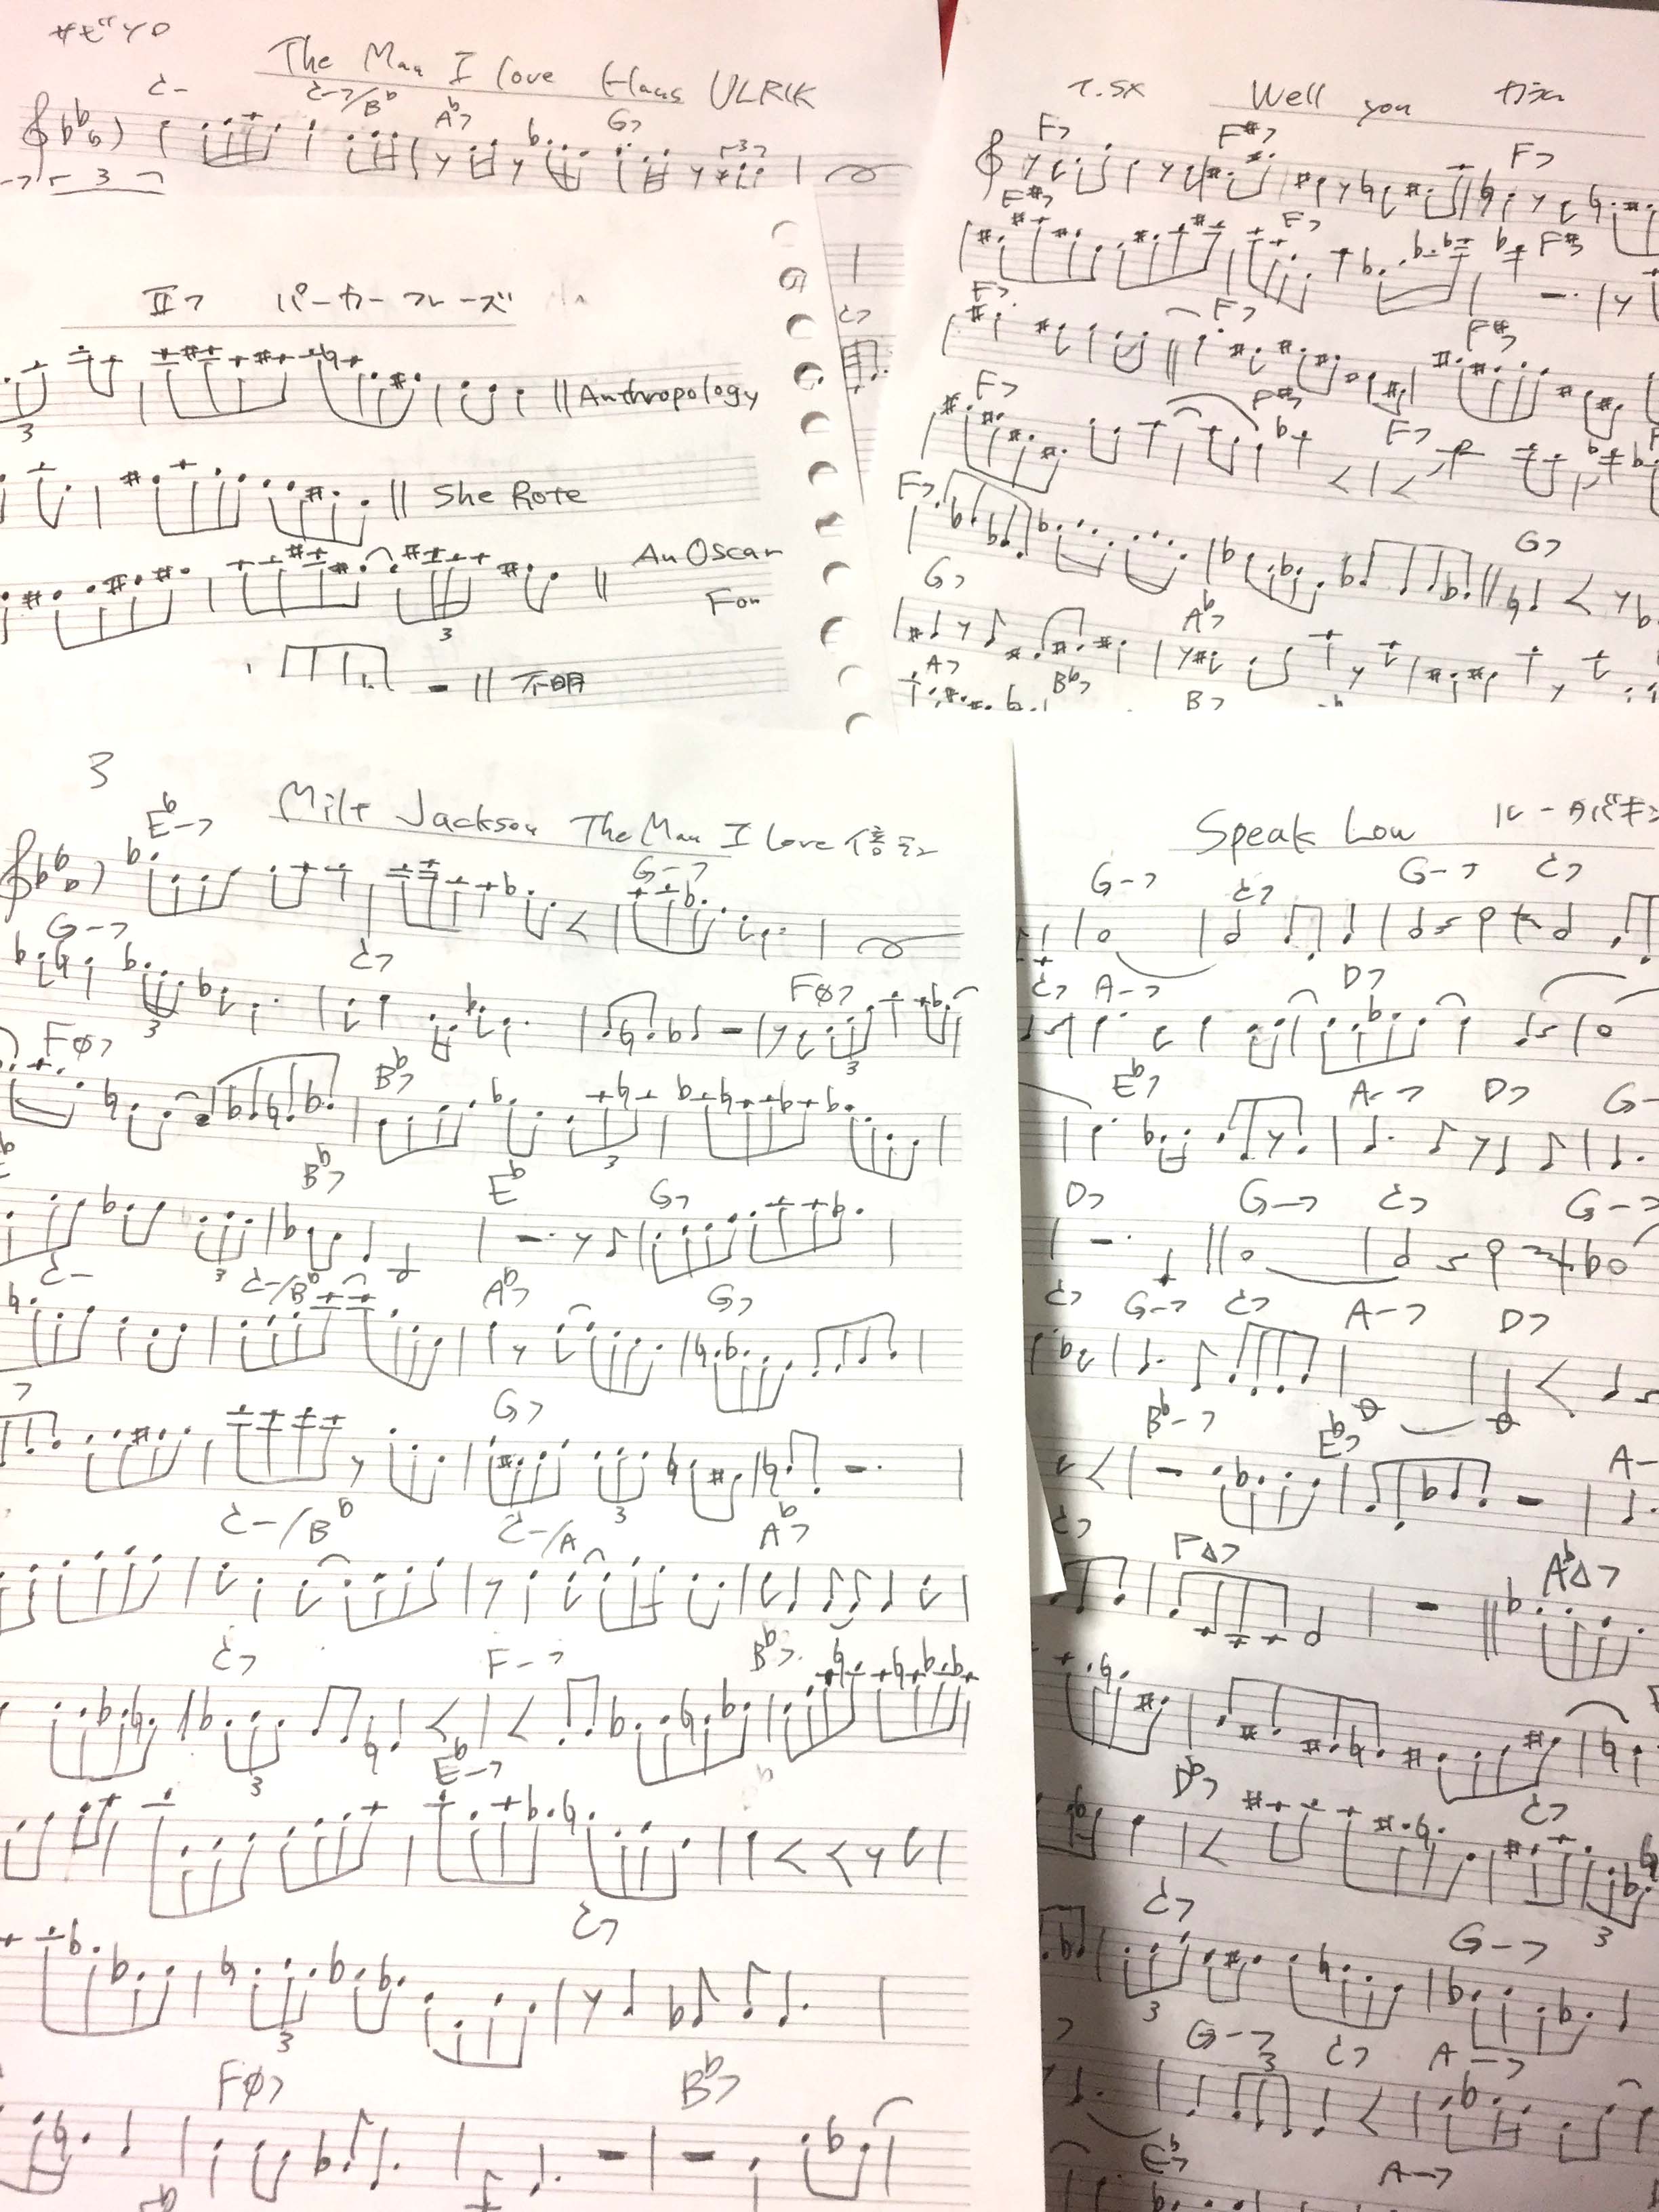 The Man I Love Hans ULRIK
C-
C-7/B♭
A♭7
G7
3
II7 パーカーフレーズ
3
Anthropology
She Rote
An Oscar
For
3
不明
T.SX Well you
F7 F#7 F7
F#7 F7 F#7
F7 F7 F#7
F7 F#7 F7
F7 G7
G7 A♭7
A7 B♭7 B7
3
Milt Jackson The Man I Love
E♭-7 G-7
G-7 C7 FØ7
3 3
FØ7 B♭7
3
B♭7 E♭ G7
3
C- C-/B♭ A♭7 G7
7 G7
3
C-/B♭ C-/A A♭7
C7 F-7 B♭7
3
E♭-7
C7
3
FØ7 B♭7
Speak Low
G-7 C7 G-7 C7
C7 A-7 D7
E♭7 A-7 D7 G-
D7 G-7 C7 G-7
C7 G-7 C7 A-7 D7
B♭-7 E♭7 A-
C7 F△7 A♭△7
D♭7 C7
3
C7 G-7
3
7 G-7 C7 A-7
3
E♭7 A-7